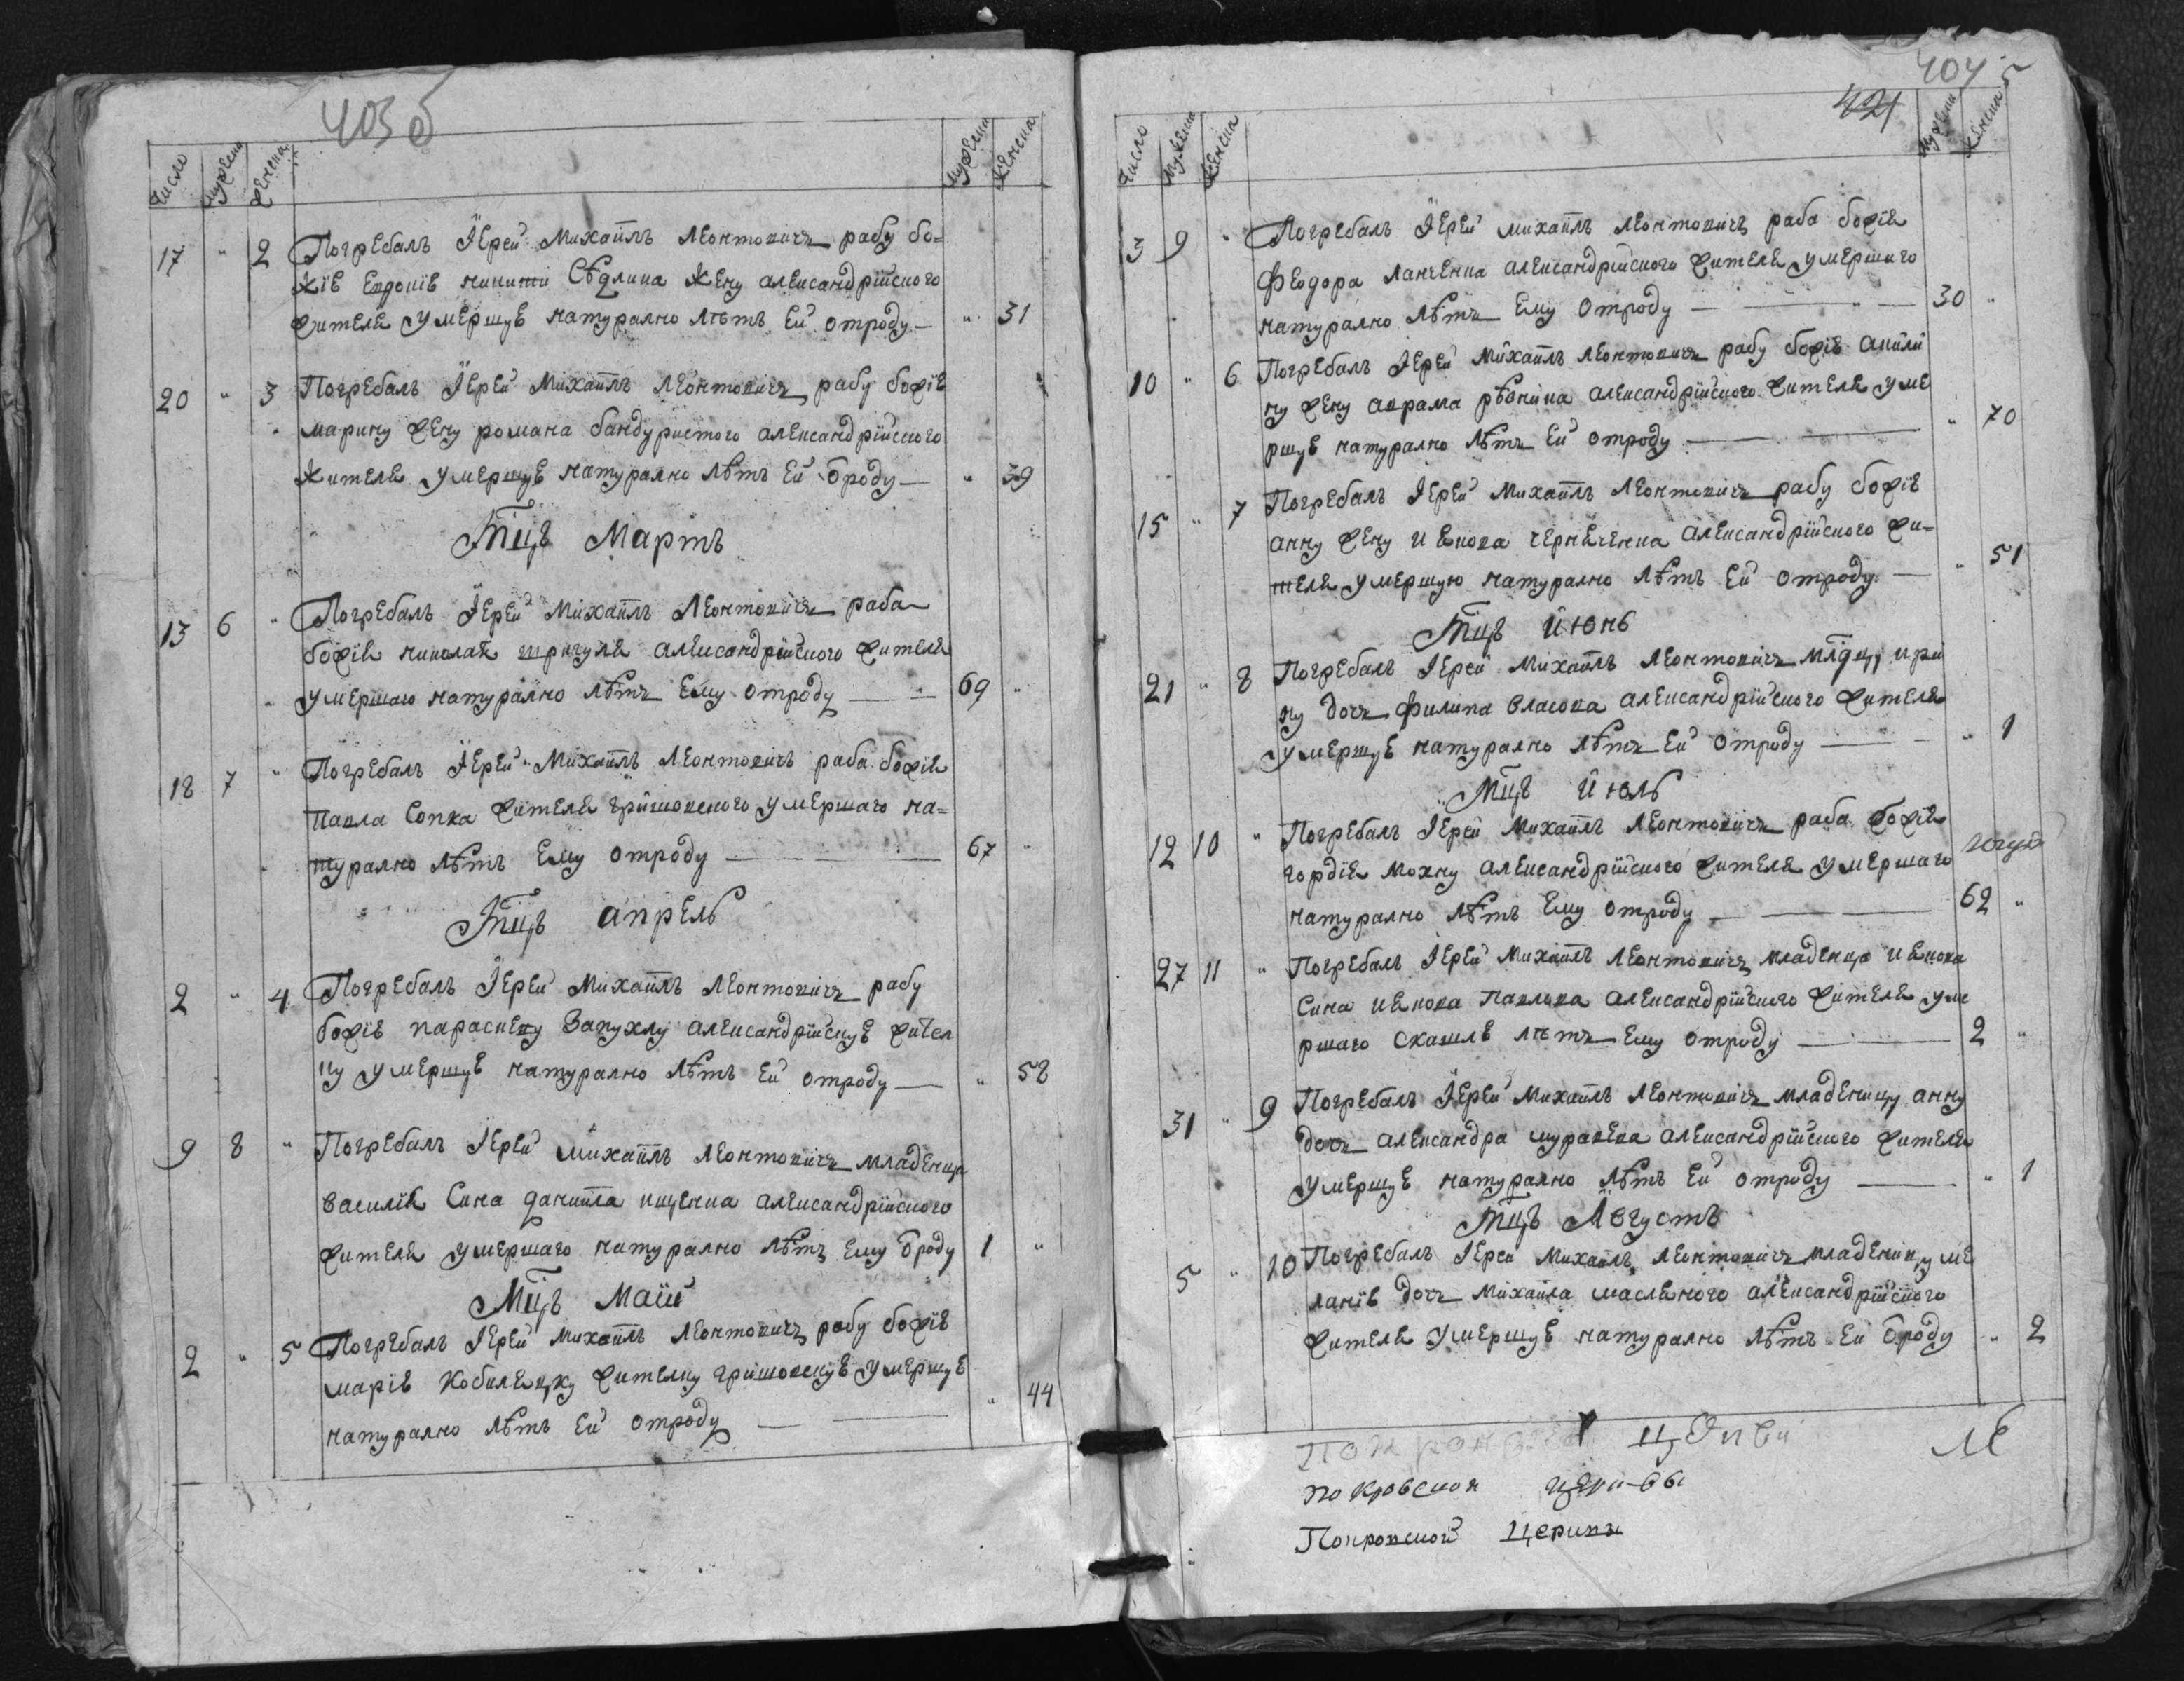 403б
Число мужеска женска мужеска женска
17 " 2 Погребалъ Іерей Михаилъ Леонтовичъ рабу бо=
жіѣ Евдокіѣ никити Сѣдлика жену александрійского
жителя умершуѣ натурално лѣтъ ей отроду — " 31
20 " 3 Погребалъ Іерей Михаилъ Леонтовичъ рабу божіѣ
марину жену романа бандуристого александрійского
жителя умершуѣ натурално лѣтъ ей ѿроду — " 39
Мцѣ Мартъ
13 6 " Погребалъ Іерей Михаилъ Леонтовичъ раба
божія николая александрійского жителя
умершаго натурално лѣтъ ему отроду — 69 "
18 7 " Погребалъ Іерей Михаилъ Леонтовичъ раба божія
павла Сопка жителя гришовского умершаго на=
турално лѣтъ ему отроду — 67 "
Мцѣ апрель
2 " 4 Погребалъ Іерей Михаилъ Леонтовичъ рабу
божіѣ параскеву Запухлу александрійскуѣ жител
ку умершуѣ натурално лѣтъ ей отроду — " 58
9 8 " Погребалъ Іерей михаилъ леонтовичъ младенца
василія Сина данила ищенка александрійского
жителя умершаго натурално лѣтъ ему ѿроду 1 "
Мцѣ Маій
2 " 5 Погребалъ Іерей Михаилъ Леонтовичъ рабу божіѣ
маріѣ Кобилецку жителку гришовскуѣ умершуѣ
натурално лѣтъ ей отроду — " 44
404
421
Число мужеска женска мужеска женска
3 9 " Погребалъ Іерей михаилъ леонтовичъ раба божія
Феодора Ланченка александрійского жителя умершаго
натурално лѣтъ ему отроду — 30 "
10 " 6 Погребалъ Іерей Михаилъ леонтовичъ рабу божіѣ акили
ну жену аврама рѣзника александрійского жителя уме
ршуѣ натурално лѣтъ ей отроду — " 70
15 " 7 Погребалъ Іерей Михаилъ Леонтовичъ рабу божіѣ
анну жену иякова чернеченка александрійского жи=
теля умершую натурално лѣтъ ей отроду — " 51
Мцѣ Июнь
21 " 8 Погребалъ Іерей Михаилъ Леонтовичъ млдцу ири
ну дочъ филипа власова александрійского жителя
умершуѣ натурално лѣтъ ей отроду — " 1
Мцѣ Июль
12 10 " Погребалъ Іерей Михаилъ Леонтовичъ раба божія
гордія мохну александрійского жителя умершаго
натурално лѣтъ ему отроду — 62 "
27 11 " Погребалъ Іерей Михаилъ Леонтовичъ младенца иякова
Сина иякова павлова александрійского жителя уме
ршаго скашлѣ лѣтъ ему отроду — 2 "
31 " 9 Погребалъ Іерей Михаилъ Леонтовичъ младеницу анну
дочъ александра муравева александрійского жителя
умершуѣ натурално лѣтъ ей отроду — " 1
Мцѣ Августъ
5 " 10 Погребалъ Іерей Михаилъ Леонтовичъ младеницу ме
ланіѣ дочъ михаила масляного александрійского
жителя умершуѣ натурално лѣтъ ей ѿроду " 2
Покровской
покровской
Покровской церкви